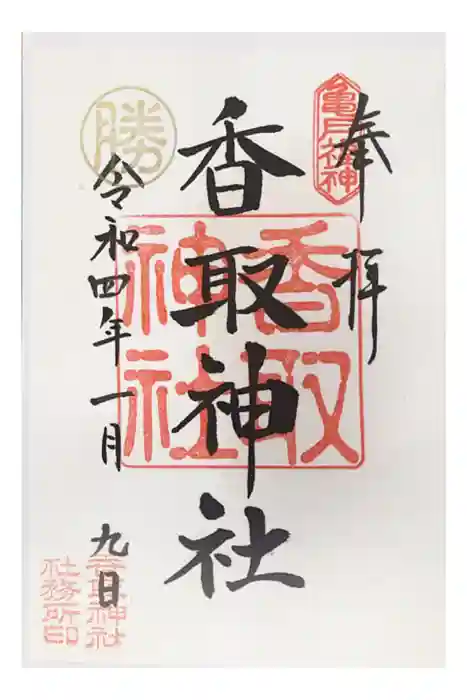 亀戸祖神
奉拝
香取神社
香取
神社
勝
令和四年一月九日
香取神社
社務所印